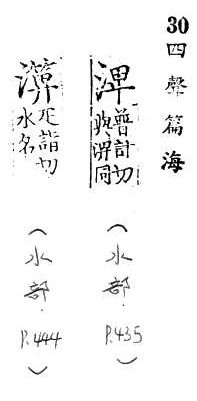 30 四聲篇海
渒 普計切
與淠同
(水部. P.435)
疋詣切
水名
(水部. P.444)